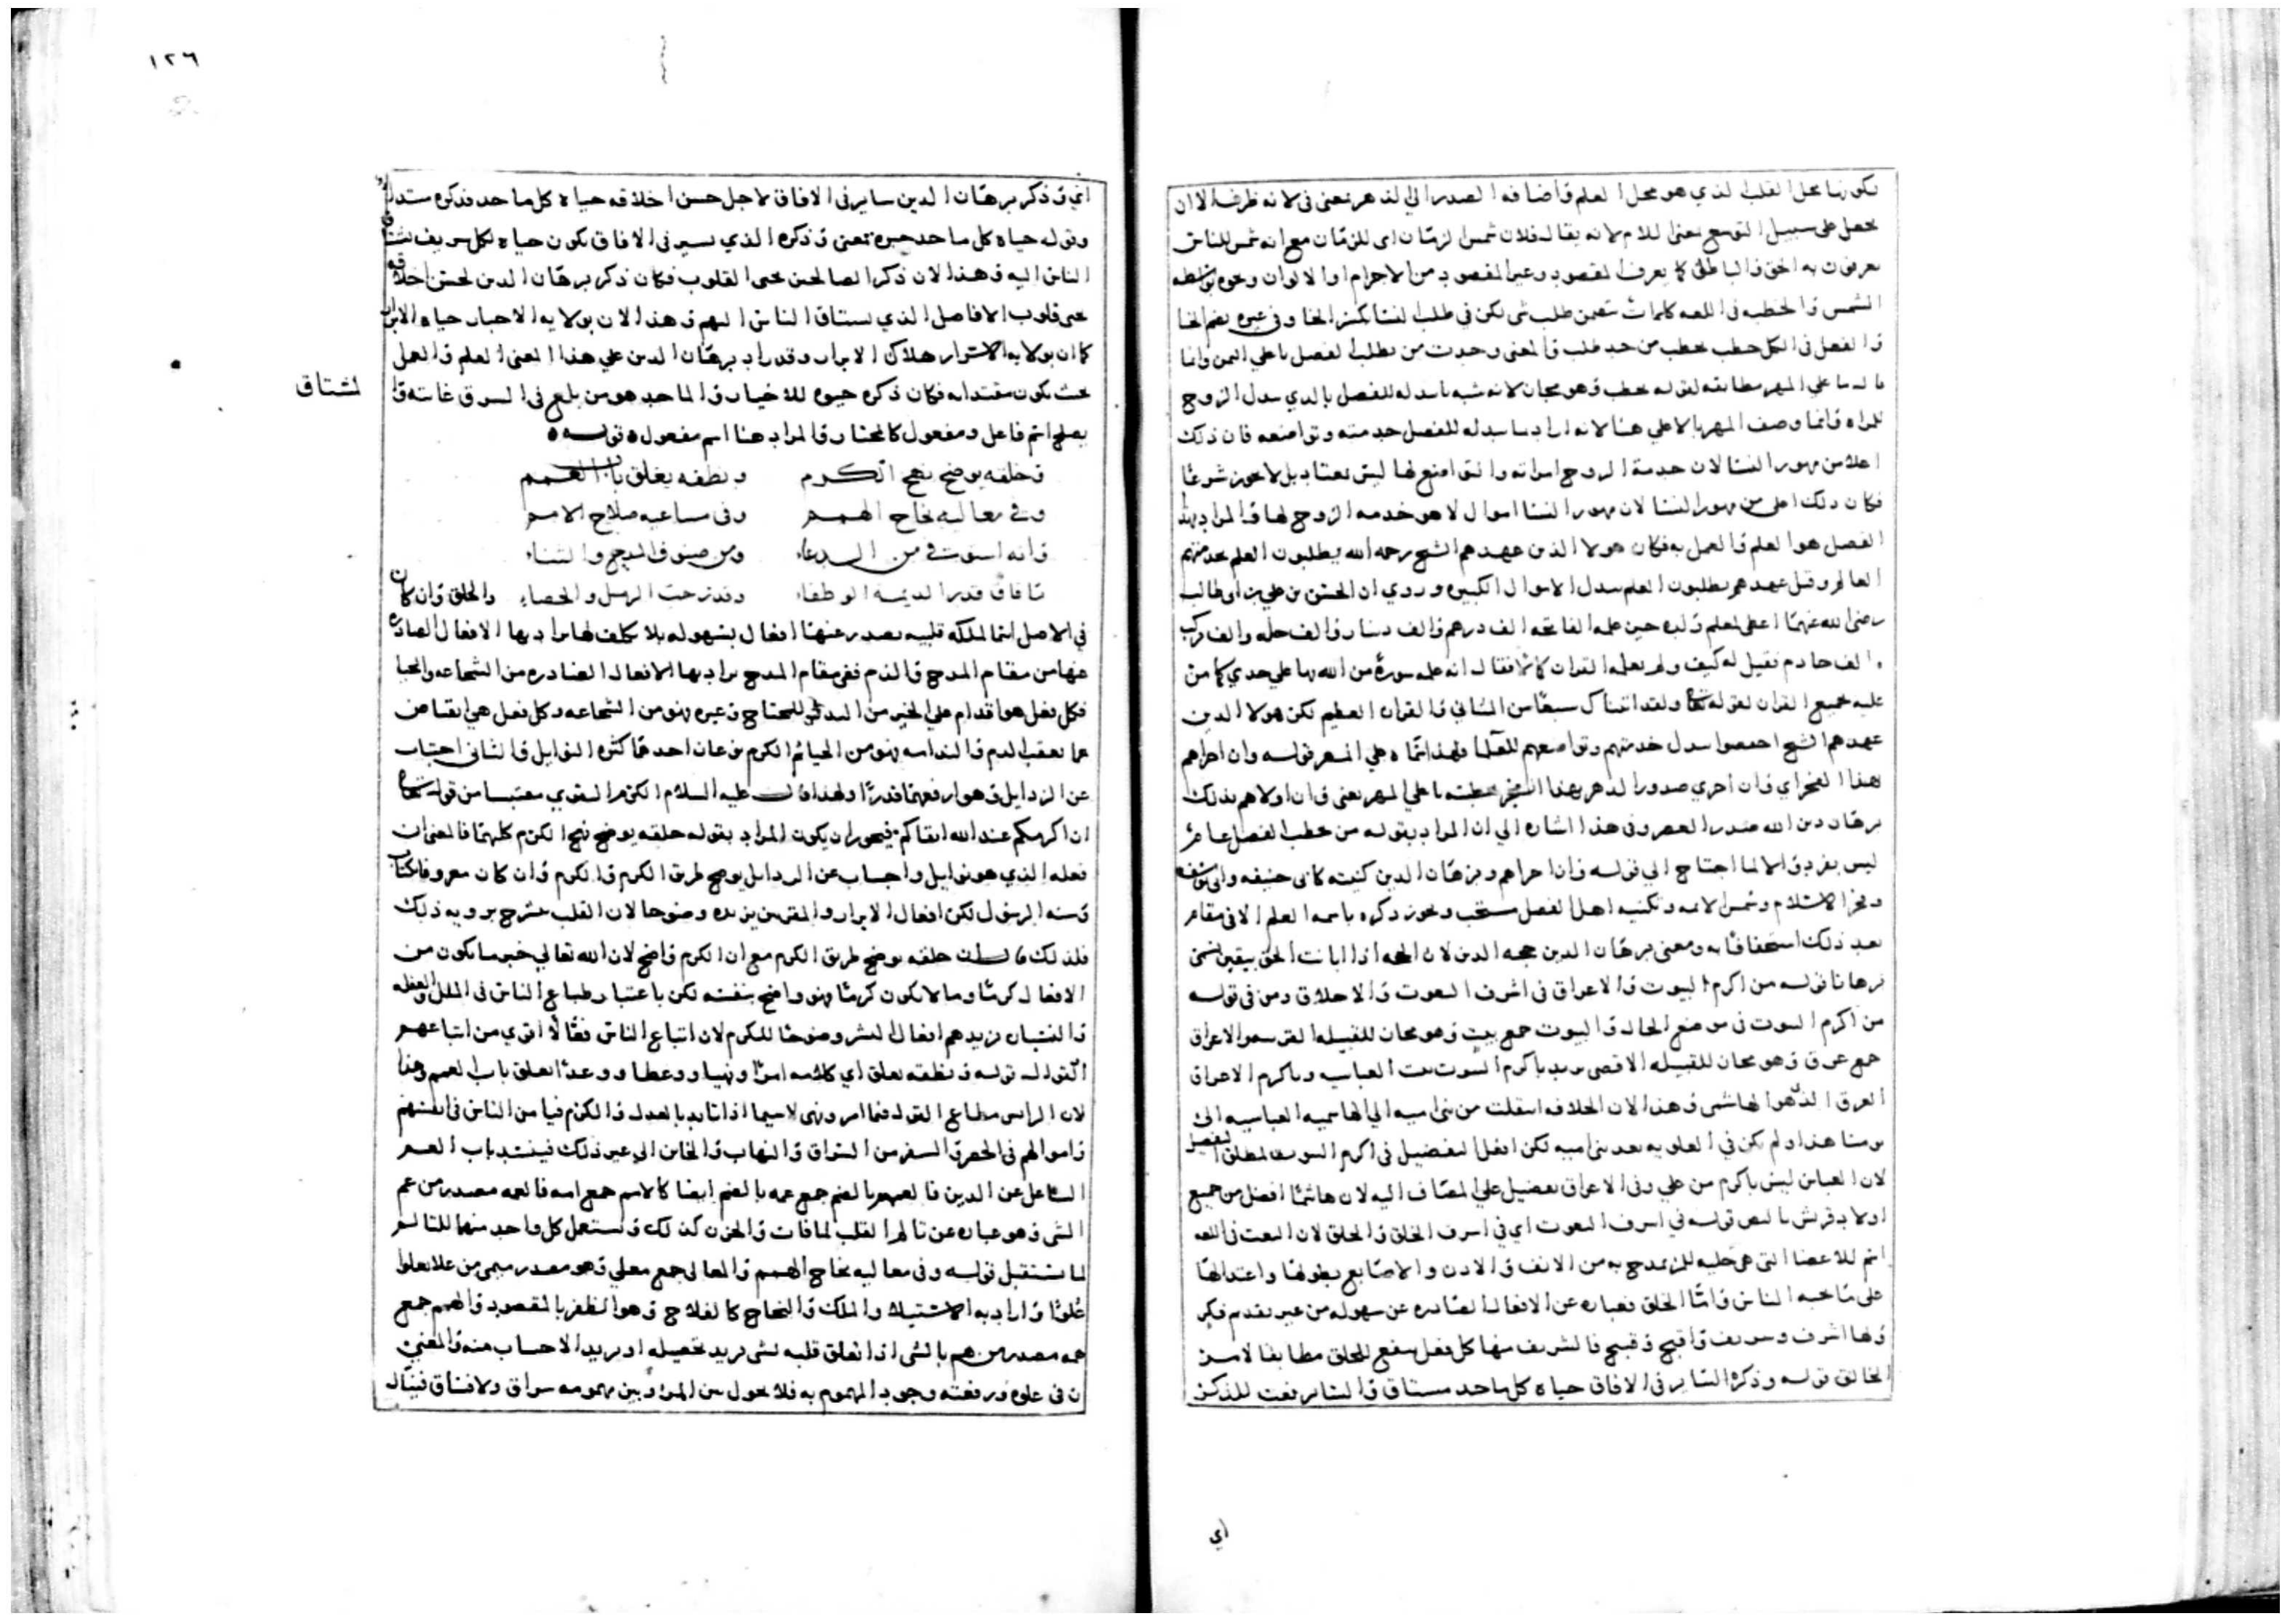 بكونها محل القلب الذي هو محل العلم واضافه الصدر الي الدهر بمعني في لانه ظرف الا ان
يحصل علي سبيل التوسع بمعني اللام لانه يقال فلان شمس الزمان اي للزمان مع انه شمس للناس
يعرفون به الحق والباطل كما يعرف المقصود وغير المقصود من الاجرام والالوان ونحوه بواسطه
الشمس والخطبه في اللغه كلمات تتضمن طلب شي لكن في طلب النسا بكسر الخا وفي غيره بضم الخا
والفعل في الكل خطب يخطب من حد طلب والمعني وجدت من يطلب الفضل باعلي الثمن وانما
قال باعلي المهر مطابقه لقوله يخطب وهو مجاز لانه شبه ما يبذله للفضل بالذي يبذل الزوج
للمراه وانما وصف المهر بالاعلي هنا لانه اراد بما يبذله للفضل خدمته وتواضعه فان ذلك
اعلا من مهور النسا لان خدمة الزوج امراته والتواضع لها ليس بمعتاد بل لا يجوز شرعا
فكان ذلك اعلي من مهور النسا لان مهور النسا اموال لا هو خدمه الزوج لها والمراد بهذا
الفضل هو العلم والعمل به فكان هولا الذين عهدهم الشيخ رحمه الله يطلبون العلم بخدمتهم
العالم وقبل عهدهم يطلبون العلم ببذل الاموال الكثيره وروي ان الحسين بن علي بن ابي طالب
رضي الله عنهما اعطي لمعلم ولده حين علمه الفاتحه الف درهم والف دينار والف حله والف مركب
والف خادم فقيل له كيف ولم يعلمه القران كاملا فقال انه علمه سورة من الله بها علي جدي كما من
عليه جميع القران لقوله تعالي ولقد اتيناك سبعا من المثاني والقران العظيم لكن هولا الذين
عهدهم الشيخ اختصوا ببذل خدمتهم وتواضعهم للعلما فلهذا سماه علي المهر قوله وان احراهم
هذا الفخر اي وان احري صدور الدهر بهذا الفخر بخطبته باعلي المهر يعني وان اولاهم بذلك
برهان دين الله صدر العصر وفي هذا اشاره الي ان المراد بقوله من يخطب الفضل عام
ليس بفرد والا لما احتاج الي قوله وان احراهم وبرهان الدين كنيته كابي حنيفه وابي يوسف
وفخر الاسلام وشمس الائمه وتكنيه اهل الفضل مستحب ويجوز ذكره باسمه العلم الا في مقام
يعد ذلك استخفافا به ومعني برهان الدين حجه الدين لان الحجه اذا ابانت الحق بيقين تسمي
برهانا قوله من اكرم البيوت والاعراق في اشرف النعوت والاخلاق ومن في قوله
من اكرم البيوت في موضع الحال والبيوت جمع بيت وهو مجاز للقبيله القريبه والاعراق
جمع عرق وهو مجاز للقبيله الاقصي يريد باكرم البيوت بيت العباسيه وباكرم الاعراق
العرق الذي هو الهاشمي وهذا لان الخلافه انتقلت من بني اميه الي الهاشميه العباسيه الي
يومنا هذا ولم تكن في العلويه بعد بني اميه لكن افعل التفضيل في اكرم البيوت لمطلق الفضل
لان العباس ليس باكرم من علي وفي الاعراق تفضيل علي المضاف اليه لان هاشما افضل من جميع
اولاد قريش بالنص قوله في اشرف النعوت اي في اشرف الخلق والخلق لان النعت في اللغه
اسم للاعضا التي هي حليه للمرء يمدح به من الانف والاذن والاصابع بطولها واعتدالها
علي ما يحبه الناس واما الخلق فعباره عن الافعال الصادره عن سهوله من غير تقدم فكر
ولها اشرف وشريف واقبح وقبيح فالشريف منها كل فعل ينفع للخلق مطابقا لامر
الخالق قوله وذكره السائر في الافاق حياه كل ماجد مشتاق والسائر نعت للذكر
اي
١٢٦
اي وذكر برهان الدين ساير في الافاق لاجل حسن اخلاقه حياه كل ماجد فذكره مبتدا
وقوله حياه كل ماجد خبره بمعني وذكره الذي يسير في الافاق يكون حياه لكل شريف يشتاق
الناس اليه وهذا لان ذكر الصالحين يحيي القلوب فكان ذكر برهان الدين لحسن اخلاقه
يحيي قلوب الافاضل الذي يشتاق الناس اليهم وهذا لان بولايه الاخيار حياه الابرار
كما ان بولايه الاشرار هلاك الابرار وقد زاد برهان الدين علي هذا المعني العلم والعمل
بحيث يكون مقتدا به فكان ذكره حيوه للاخيار والماجد هو من بلغ في الشرف غايته و
لمشتاق
يصلح اسم فاعل ومفعول كالمختار والمراد هنا اسم مفعول ه قوله ه
وخلقه يوضح نهج الكرم ونطقه يغلق باب الغمم
وفي معاليه نجاح الهمم وفي مساعيه صلاح الامم
وانه استوت في من الدعاء ومن صنوف المدح والثناء
ما فاق قدر الديمة الوطفاء وقد زحت الرمل والحصاء والخلق وان كان
في الاصل اسما لملكه قلبيه يصدر عنها افعال بسهوله بلا تكلف لها يراد بها الافعال الصادره
عنها من مقام المدح والذم ففي مقام المدح يراد بها الافعال الصادره من الشجاعه والحيا
فكل فعل هو اقدام علي الخير من البذل للمحتاج وغيره فهو من الشجاعه وكل فعل هي انقباض
عما يعقب الذم والندامه فهو من الحيا ثم الكرم نوعان احدهما كثره النوايل والثاني اجتناب
عن الرذايل وهو ارفعهما قدرا ولهذا قال عليه السلام الكرم التقوي مقتبسا من قوله تعالي
ان اكرمكم عند الله اتقاكم فيجوز ان يكون المراد بقوله خلقه يوضح نهج الكرم كلهما فالمعني ان
فعله الذي هو نوايل واجتناب عن الرذايل يوضح طريق الكرم والكرم وان كان معروفا بكتاب
وسنه الرسول لكن افعال الابرار والمقربين يزيده وضوحا لان القلب ينشرح برويه ذلك
فلذلك قال ان خلقه يوضح طريق الكرم مع ان الكرم واضح لان الله تعالي خبر ما يكون من
الافعال كرما وما لا يكون كرما فهو واضح بنفسه لكن باعتبار طباع الناس في الملل والغفله
والنسيان يزيدهم افعال البشر وضوحا للكرم لان اتباع الناس فعالا اقوي من اتباعهم
اقوال قوله ونطقه يغلق اي كلامه امرا ونهيا ووعظا ووعدا يغلق باب الغمم وهذا
لان الرايس مطاع القول فيما امر ونهي لا سيما اذا تايد بالعدل والكرم فيامن الناس في انفسهم
واموالهم في الحضر والسفر من السراق والنهاب والخاين الي غير ذلك فينسد باب الغمم
الشاغل عن الدين فالغمم بالضم جمع غمه بالضم ايضا كالامم جمع امه فالغمه مصدر من غم
الشي وهو عباره عن تالم القلب لما فات والحزن كذلك ويستعمل كل واحد منهما للتالم
لما يستقبل قوله وفي معاليه نجاح الهمم والمعالي جمع معلي وهو مصدر ميمي من علا يعلوا
علوا واراد به الاستيلاء والملك والنجاح كالفلاح وهو الظفر بالمقصود والهمم جمع
همه مصدر من هم بالشي اذا تعلق قلبه بشي يريد تحصيله او يريد الاجتناب منه والمعني
ان في علوه ورفعته وجود المهموم به فلا يحول بين المرء وبين مهمومه سراق ولا فساق فينال